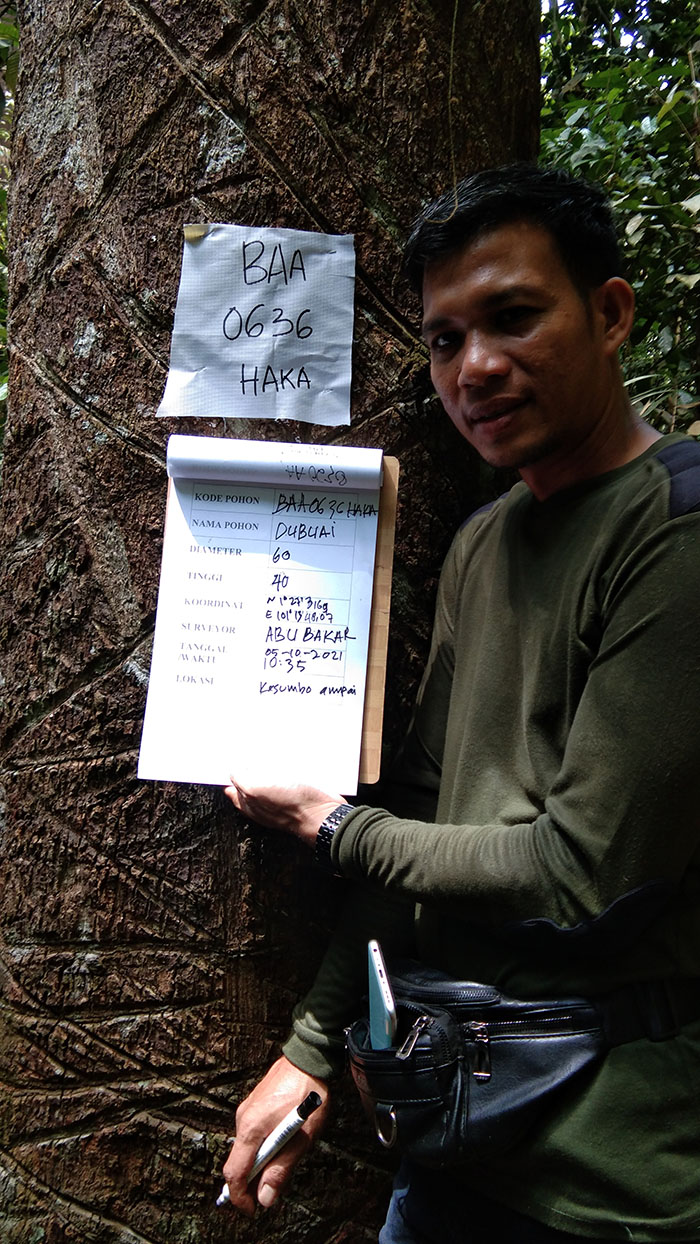 BAA
0636
HAKA
KODE POHON BAA0636 HAKA
NAMA POHON DUBUAI
DIAMETER 60
TINGGI 40
KOORDINAT N 1°27'3169
E 101°13'48,07
SURVEYOR ABU BAKAR
TANGGAL 05-10-2021
/WAKTU 10:35
LOKASI Kesumbo ampai